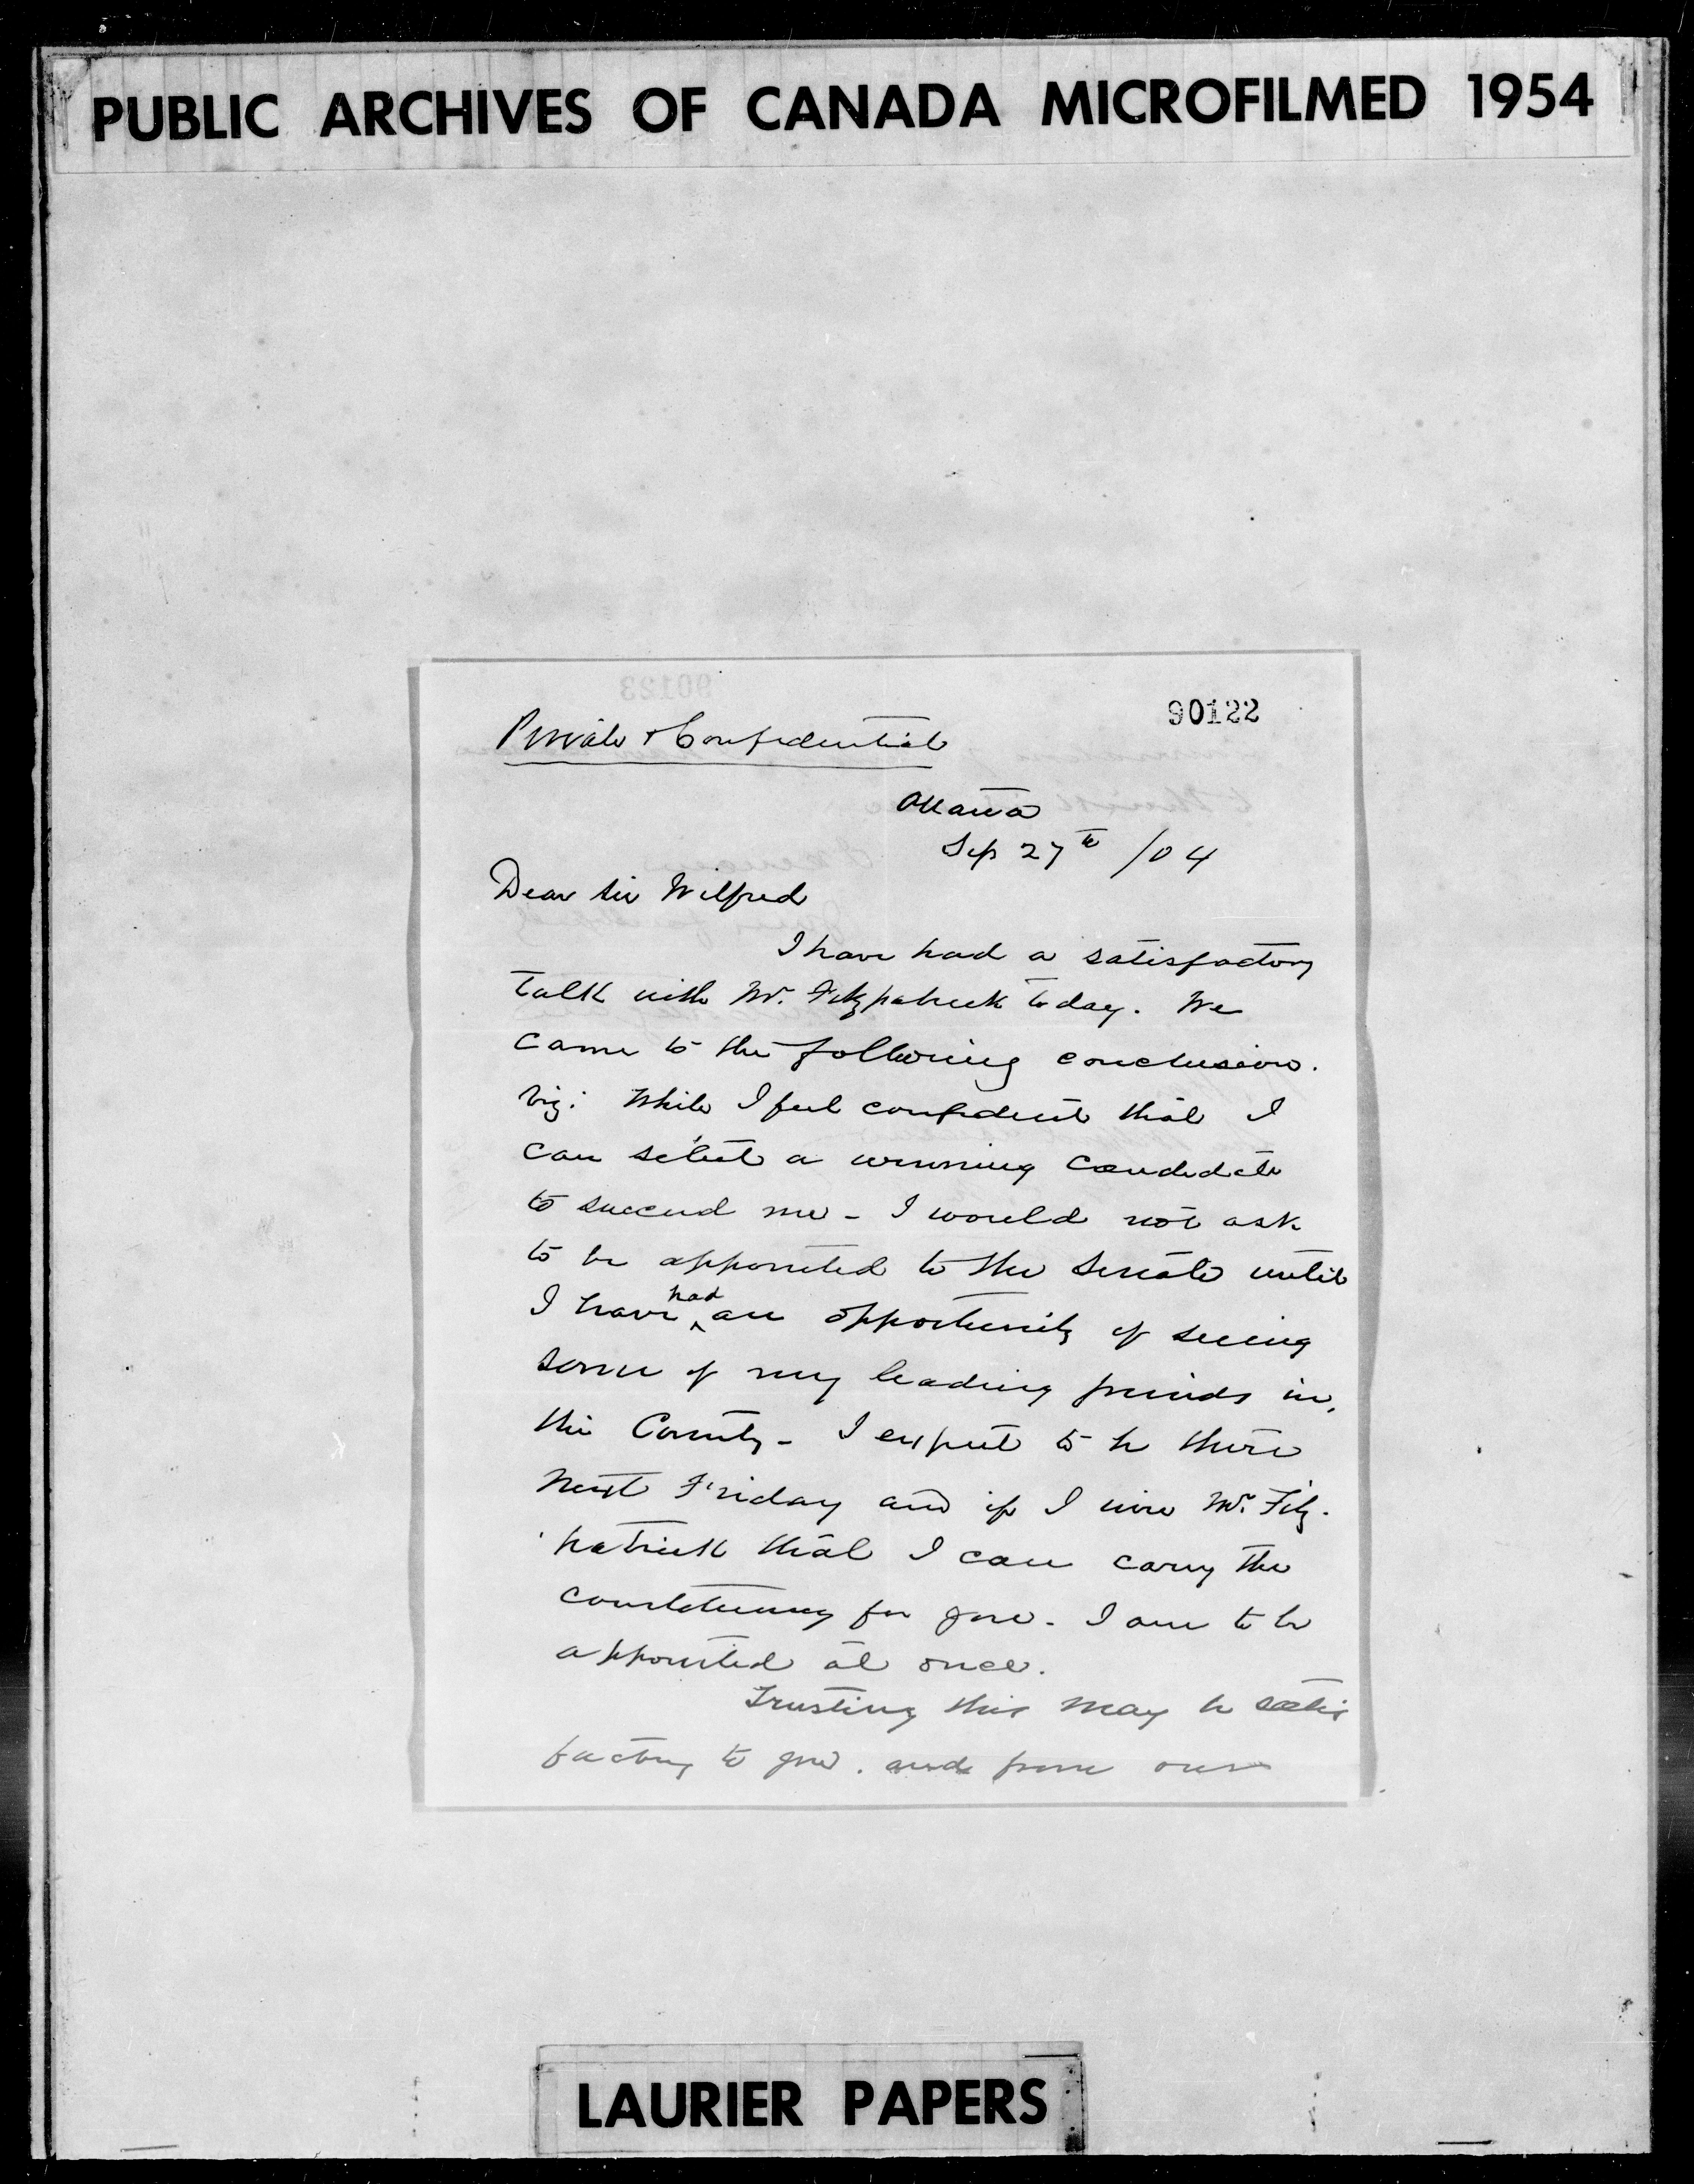 PUBLIC ARCHIVES OF CANADA MICROFILMED 1954
90123
90122
Private & Confidential
Ottawa
Sep 27th /04
Dear Sir Wilfred
I have had a satisfactory
talk with Mr. Fitzpatrick today. We
came to the following conclusion.
viz: While I feel confident that I
can select a winning candidate
to succeed me - I would not ask
to be appointed to the Senate until
I have had an opportunity of seeing
some of my leading friends in
the County - I expect to be there
next Friday and if I wire Mr. Fitz-
patrick that I can carry the
constituency for you - I am to be
appointed at once.
Trusting this may be satis
factory to you. and from our
LAURIER PAPERS